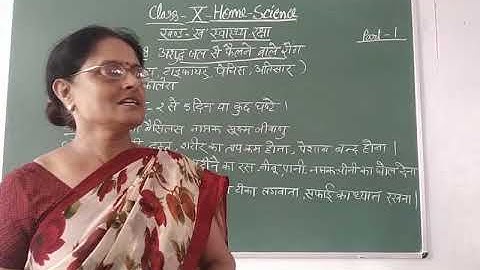 Class-X-Home-Science
खण्ड-ख स्वास्थ्य रक्षा
Part-1
अशुद्ध जल से फैलने वाले रोग
टाइफायड, पेचिस, अतिसार)
- 2 से 5 दिन या कुछ घण्टे ।
बैसिलस नामक सूक्ष्म जीवाणु
दस्त, शरीर का ताप कम होना, पेशाब बन्द होना ।
का रस, नीबू, पानी, नमक चीनी का घोल देना
टीका लगवाना, सफाई का ध्यान रखना ।